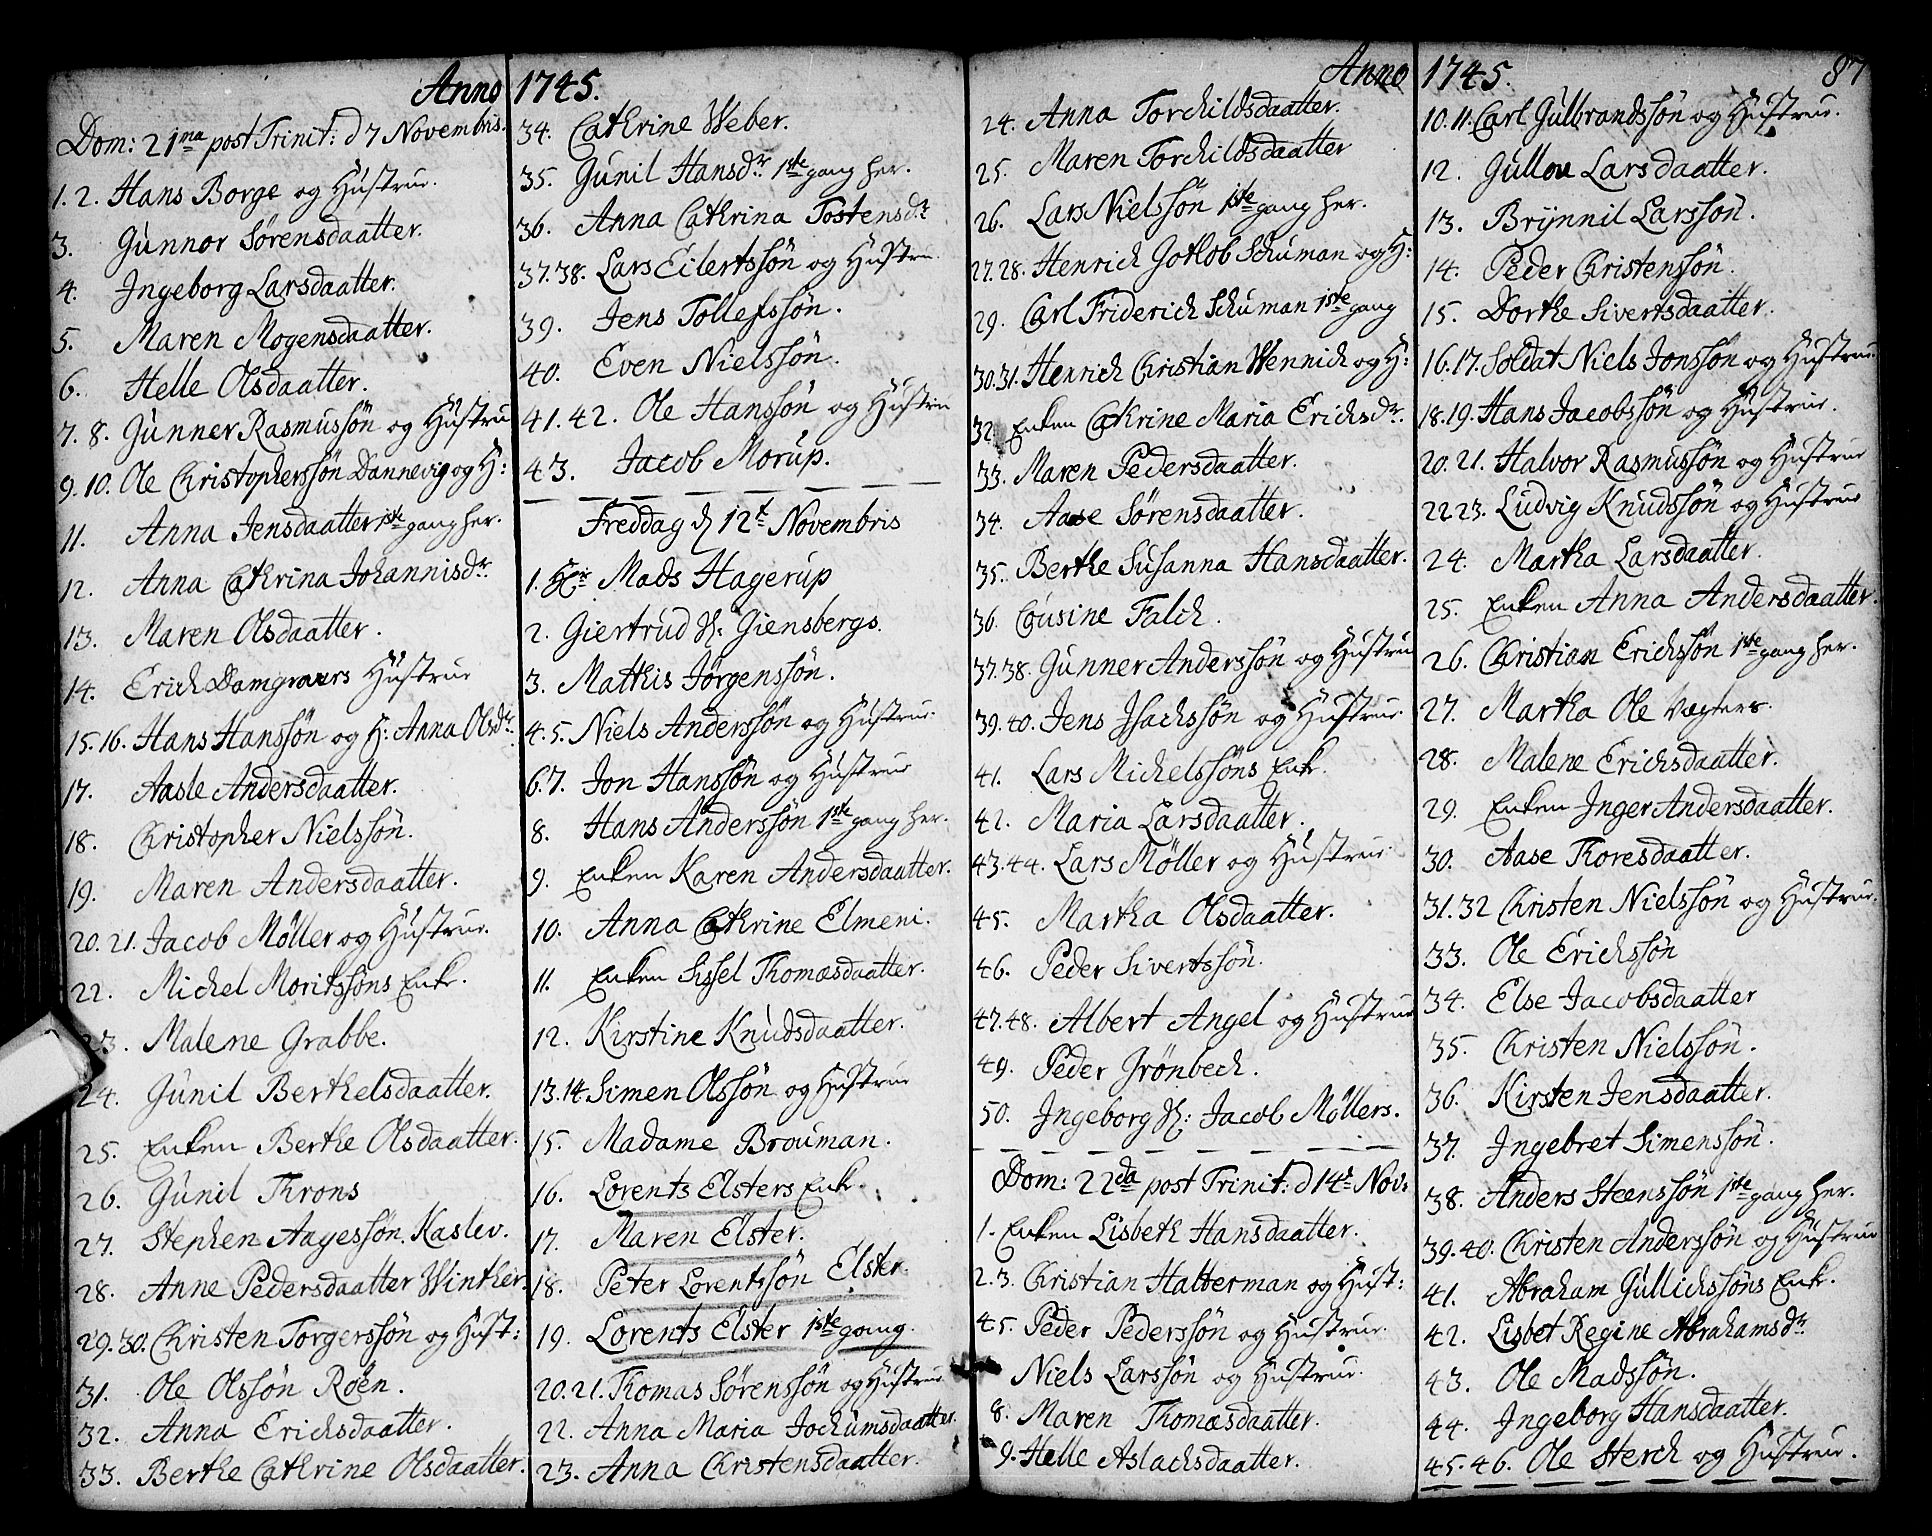 Anno 1745.
Dom: 21ma post Trinit: d 7 Novembris.
1. 2. Hans Borge og Hustrue.
3. Gunnor Sørensdaatter.
4. Ingeborg Larsdaatter.
5. Maren Mogensdaatter.
6. Helle Olsdaatter.
7. 8. Gunner Rasmussøn og Hustru
9. 10. Ole Christopherssøn Dannevig og H:
11. Anna Jensdaatter 1ste gang her.
12. Anna Cathrina Johannisdr.
13. Maren Olsdaatter.
14. Erich Damgravers Hustrue
15. 16. Hans Hanssøn og H: Anna Olsdr.
17. Aasle Andersdaatter.
18. Christopher Nielssøn.
19. Maren Andersdaatter.
20. 21. Jacob Møller og Hustrue.
22. Michel Moritssøns Enke.
23. Malene Grabbe.
24. Gunil Berthelsdaatter.
25. Enken Berthe Olsdaatter.
26. Gunil Throns
27. Stephen Aagessøn Kaslev.
28. Anne Pedersdaatter Winther.
29. 30. Christen Torgerssøn og Hust:
31. Ole Olssøn Röen.
32. Anna Erichsdaatter.
33. Berthe Cathrine Olsdaatter.
34. Cathrine Weber.
35. Gunil Hansdr 1ste gang her.
36. Anna Cathrina Tostensdr
37. 38. Lars Eilertssøn og Hustru.
39. Jens Tollefssøn.
40. Even Nielssøn.
41. 42. Ole Hanssøn og Hustrue
43. Jacob Morup.
Freddag d 12t Novembris
1. Hr Mads Hagerup
2. Giertrud H: Giensbergs.
3. Mathis Jørgenssøn.
4. 5. Niels Anderssøn og Hustrue.
6. 7. Jon Hanssøn og Hustrue
8. Hans Anderssøn 1ste gang her.
9. Enken Karen Andersdaatter.
10. Anna Cathrine Elmeni.
11. Enken Sissel Thomæsdaatter.
12. Kirstine Knudsdaatter.
13. 14. Simen Olssøn og Hustrue
15. Madame Brouman.
16. Lorents Elsters Enke.
17. Maren Elster.
18. Peter Lorentssøn Elster.
19. Lorents Elster 1ste gang.
20. 21. Thomas Sørenssøn og Hustrue
22. Anna Maria Jochumsdaatter.
23. Anna Christensdaatter.
Anno 1745. 87
24. Anna Torchildsdaatter.
25. Maren Torchildsdaatter
26. Lars Nielssøn 1ste gang her.
27. 28. Henrich Gotlob Schuman og H:
29. Carl Friderich Schuman 1ste gang
30. 31. Henrich Christian Wennich og H:
32. Enken Cathrine Maria Erichsdr.
33. Maren Pedersdaatter.
34. Aase Sørensdaatter.
35. Berthe Susanna Hansdaatter.
36. Cousine Falch.
37. 38. Gunner Anderssøn og Hustru
39. 40. Jens Isachssøn og Hustrue.
41. Lars Michelssøns Enke.
42. Maria Larsdaatter.
43. 44. Lars Møller og Hustrue.
45. Martha Olsdaatter.
46. Peder Sivertssøn.
47. 48. Albert Angel og Hustrue
49. Peder Grönbech.
50. Ingeborg H: Jacob Møllers.
Dom: 22da post Trinit: d 14t Nov.
1. Enken Lisbeth Hansdaatter.
2. 3. Christian Halterman og Hust:
4 5. Peder Pederssøn og Hustrue.
Niels Larssøn og Hustrue.
8. Maren Thomæsdaatter.
9. Helle Aslachsdaatter.
10. 11. Carl Gulbrandssøn og Hustrue.
12. Gullou Larsdaatter.
13. Brynnil Larssøn.
14. Peder Christenssøn.
15. Dorthe Sivertsdaatter.
16. 17. Soldat Niels Jonssøn og Hustrue.
18. 19. Hans Jacobssøn og Hustrue.
20. 21. Halvor Rasmussøn og Hustrue
22 23. Ludvig Knudssøn og Hustrue
24. Martha Larsdaatter.
25. Enken Anna Andersdaatter.
26. Christian Erichssøn 1ste gang her.
27. Martha Ole Vægters
28. Malene Erichsdaatter.
29. Enken Inger Andersdaatter.
30. Aase Thoresdaatter.
31. 32 Christen Nielssøn og Hustrue.
33. Ole Erichssøn
34. Else Jacobsdaatter
35. Christen Nielssøn.
36. Kirsten Jensdaatter.
37. Ingebret Simenssøn.
38. Anders Steenssøn 1ste gang her.
39. 40. Christen Anderssøn og Hustrue
41. Abraham Gullichssøns Enke.
42. Lisbet Regine Abrahamsdr
43. Ole Madssøn.
44. Ingeborg Hansdaatter.
45. 46. Ole Sterch og Hustrue.